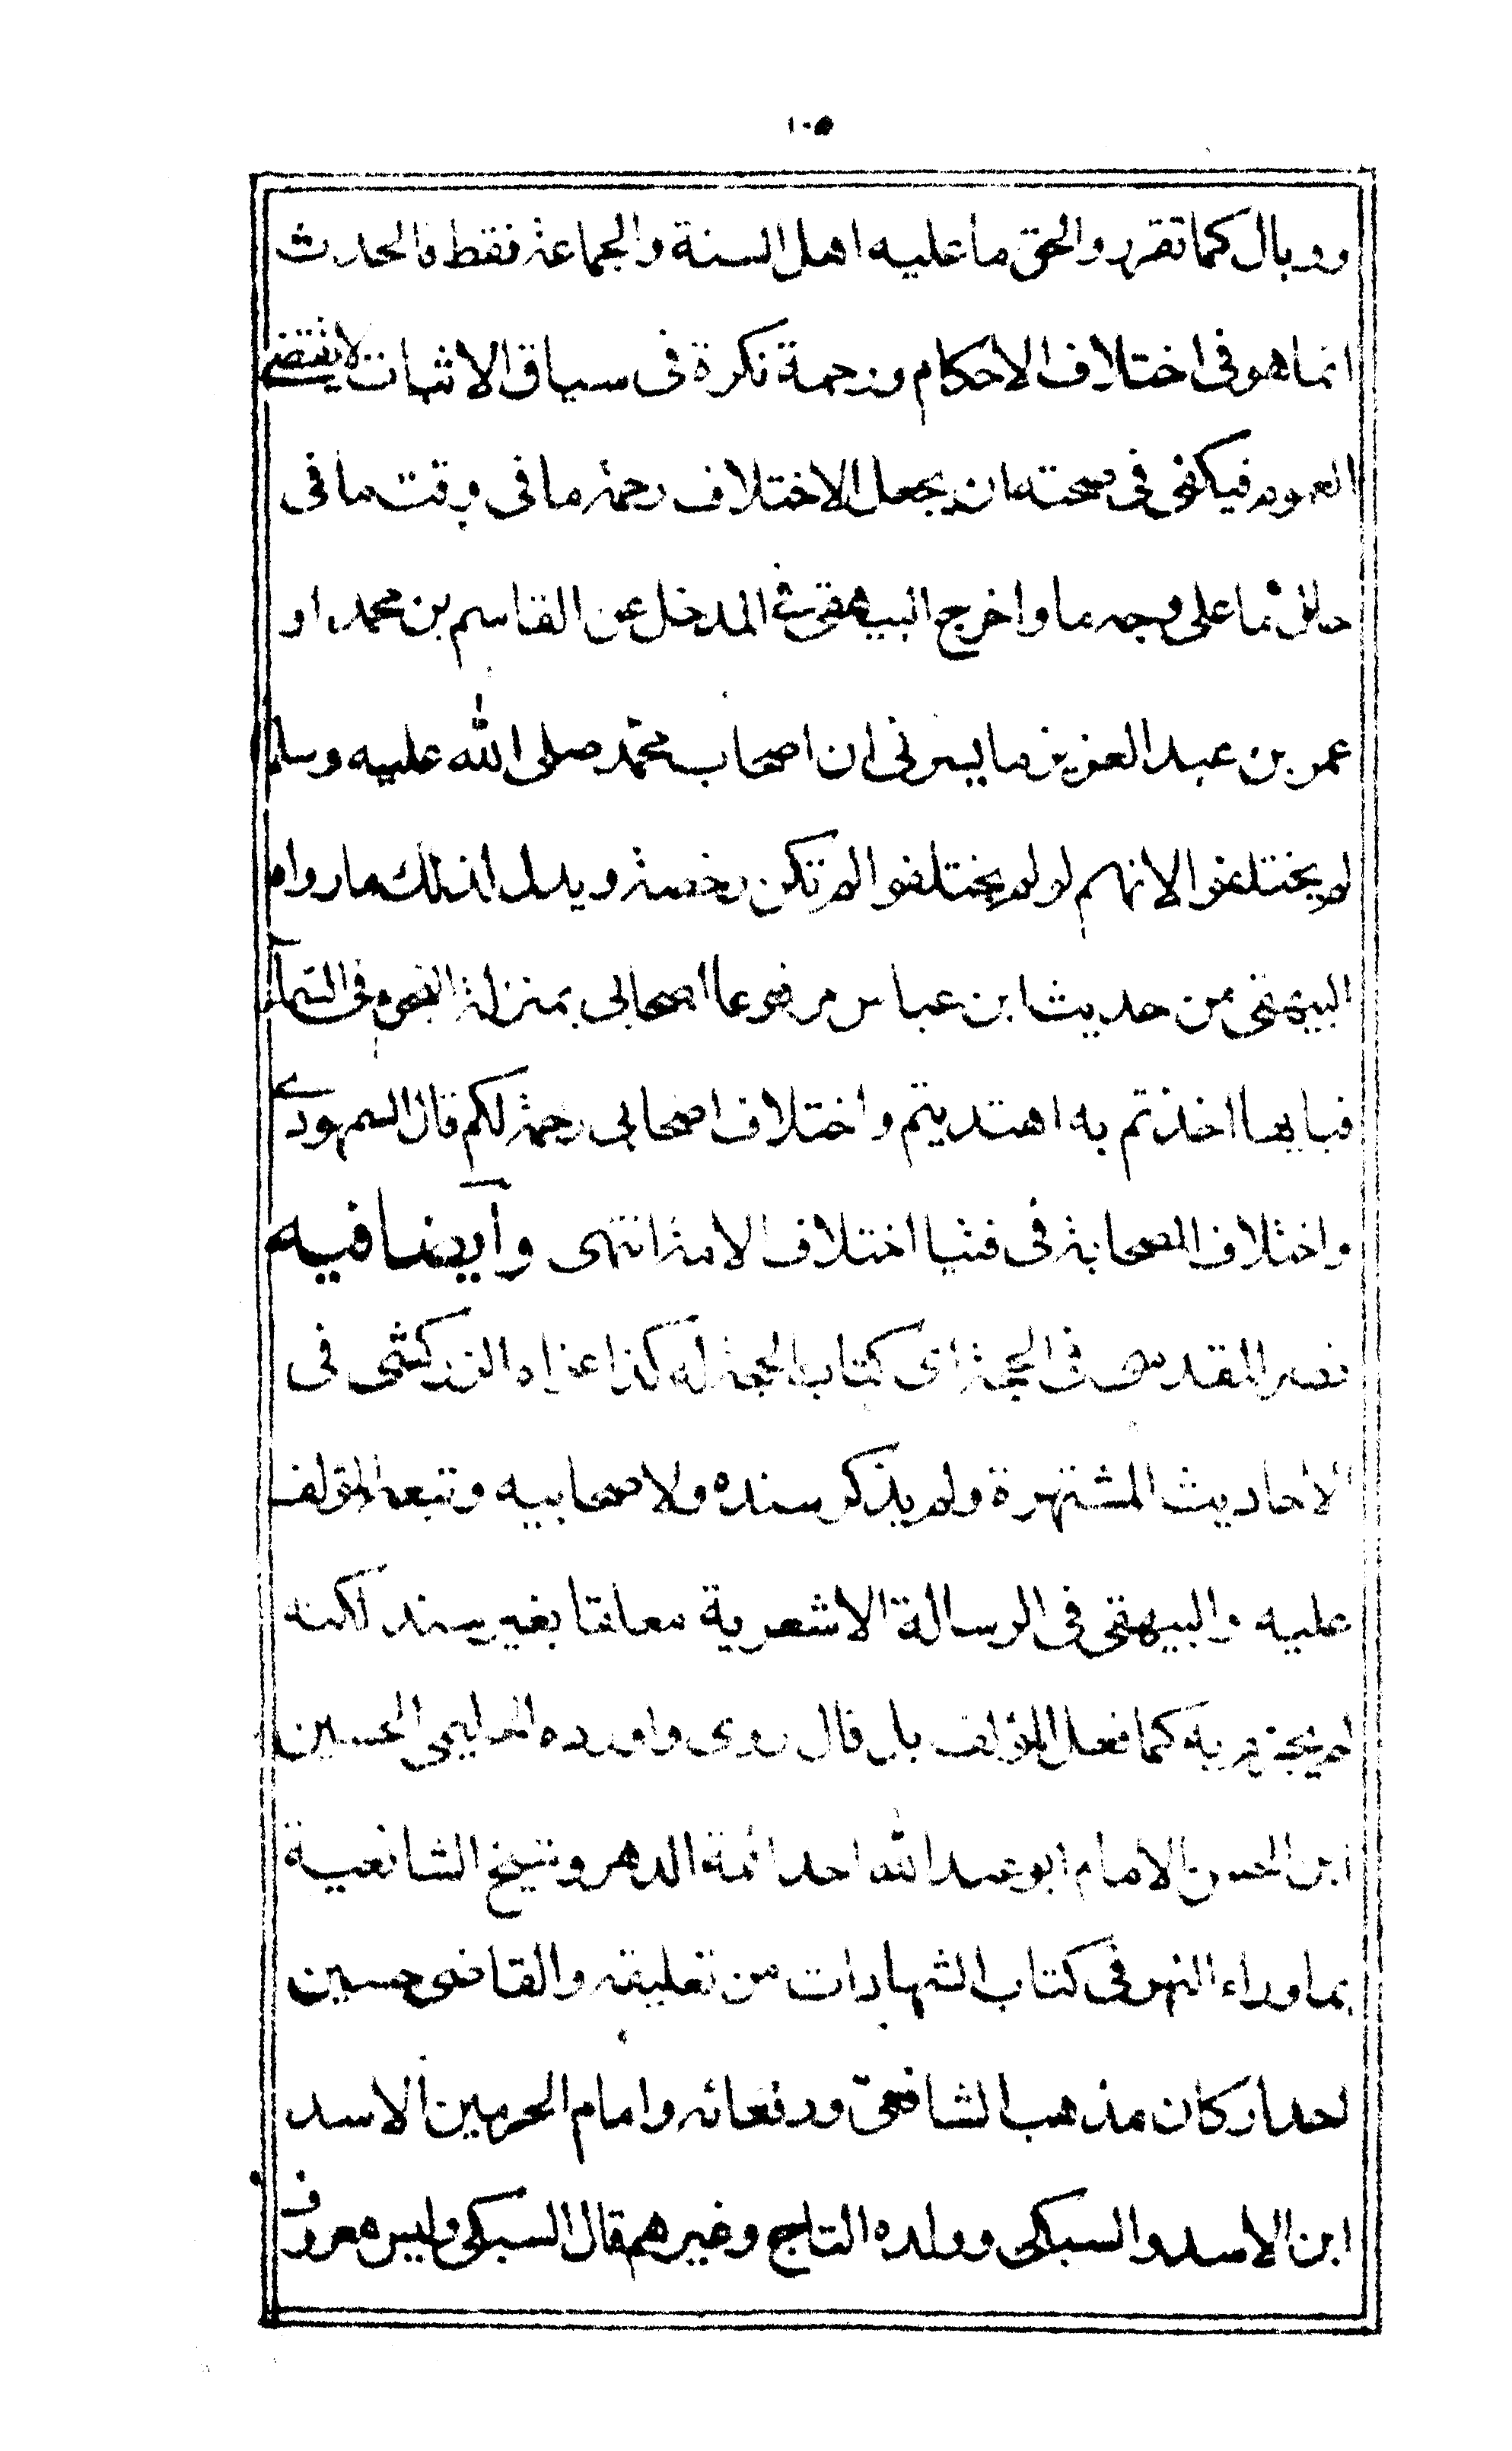 ١٠٥
ووبال كما تقرر والحق ما عليه اهل السنة والجماعة فقط فالحدث
انما هو فى اختلاف الاحكام ورحمة نكرة فى سياق الاثبات لا يقتضى
العموم فيكفى فى صحته ان يجعل الاختلاف رحمة ما فى وقت ما فى
حال ما على وجه ما واخرج البيهقى فى المدخل عن القاسم بن محمد او
عمر بن عبد العزيز ما يسرنى ان اصحاب محمد صلى الله عليه وسلم
لم يختلفوا لانهم لو لم يختلفوا لم تكن رخصة ويدل لذلك ما رواه
البيهقى من حديث ابن عباس مرفوعا اصحابى بمنزلة النجوم فى السماء
فبايها اخذتم به اهتديتم واختلاف اصحابى رحمة لكم قال السمهودى
واختلاف الصحابة فى فتيا اختلاف الامة انتهى وأيضا فيه
نصر المقدسى فى الحجة اى كتاب الحجة له كذا عزاه الزركشى فى
الاحاديث المشتهرة ولم يذكر سنده ولا صحابيه وتبعه المؤلف
عليه والبيهقى فى الرسالة الاشعرية معلقا بغير سند لكنه
لم يجزم به كما فعل المؤلف بل قال روى واورده الحليمى الحسين
ابن الحسن الامام ابو عبد الله احد ائمة الدهر وشيخ الشافعية
بما وراء النهر فى كتاب الشهادات من تعليقه والقاضى حسين
احد اركان مذهب الشافعى ورفعائه وامام الحرمين الاسد
ابن الاسد والسبكى وولده التاج وغيرهم قال السبكى وليس معروف